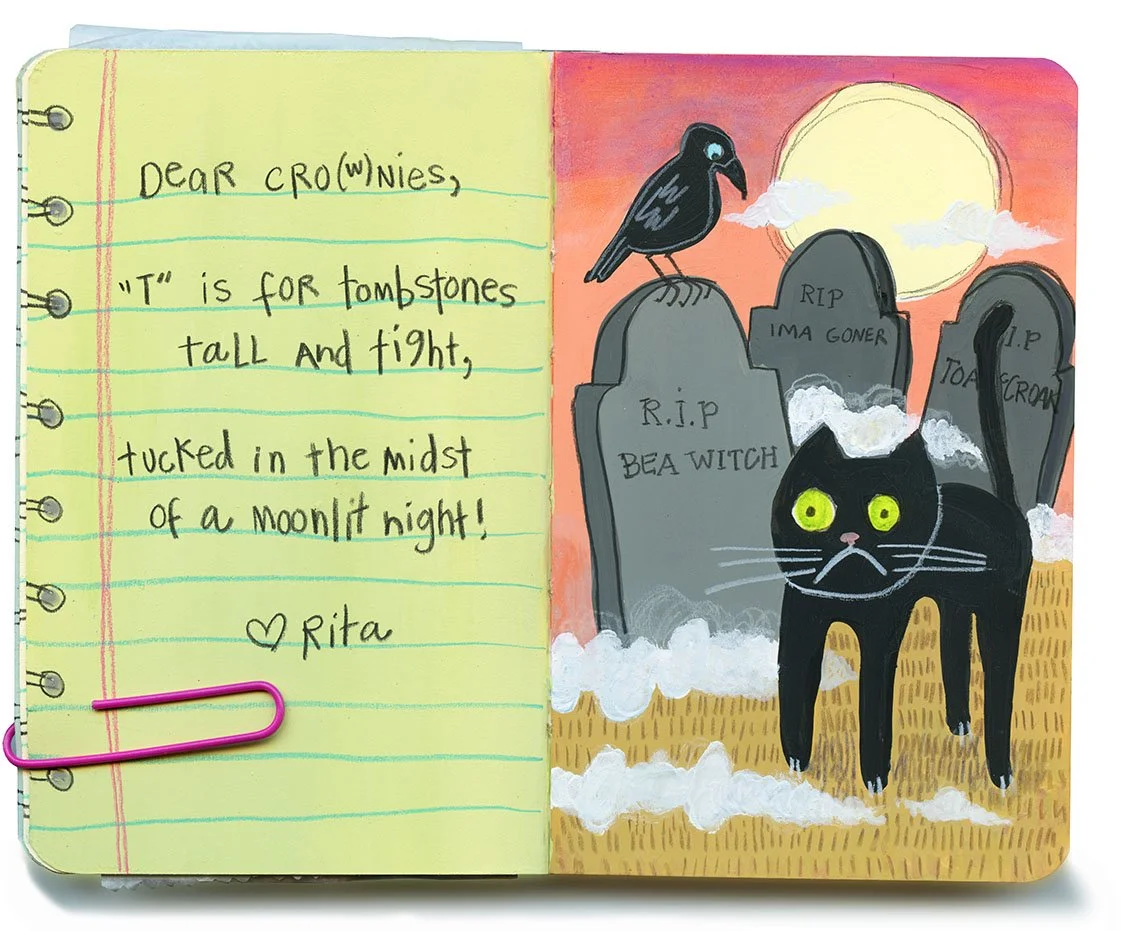 Dear Cro(w)nies,
"T" is for tombstones
tall and tight,
tucked in the midst
of a moonlit night!
♡ Rita
R.i.P
BEA WITCH
RIP
IMA GONER
I.P